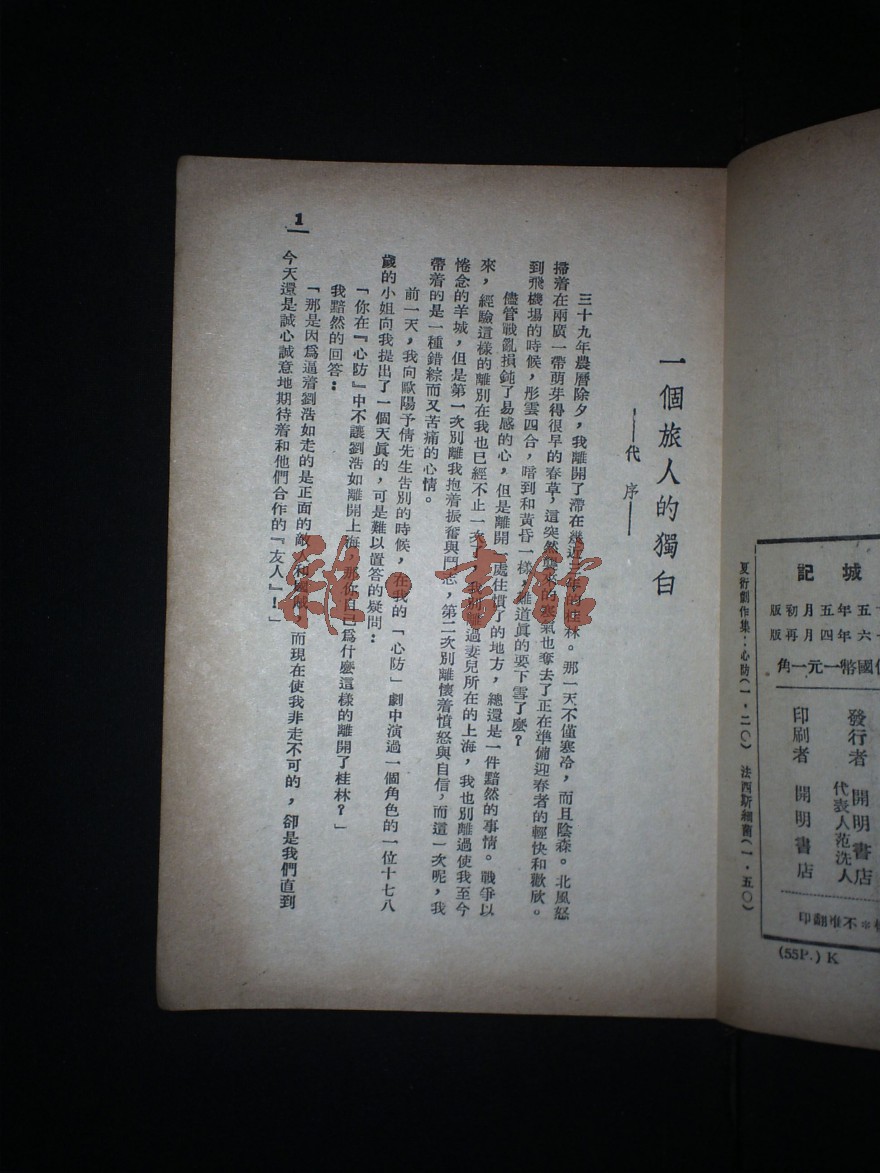 城記
五年五月初版
六年四月再版
國幣一元一角
發行者
開明書店
代表人范洗人
印刷者
開明書店
不准翻印
(55P.) K
夏衍劇作集：心防(一·二〇) 法西斯細菌(一·五〇)
一個旅人的獨白
——代序——
三十九年農曆除夕，我離開了滯在幾近三年的桂林。那一天不僅寒冷，而且陰森。北風怒
掃着在兩廣一帶萌芽得很早的春草，這突然襲來的寒氣也奪去了正在準備迎春者的輕快和歡欣。
到飛機場的時候，彤雲四合，暗到和黃昏一樣，難道眞的要下雪了麽？
儘管戰亂損鈍了易感的心，但是離開一處住慣了的地方，總還是一件黯然的事情。戰爭以
來，經驗這樣的離別在我也已經不止一次了，我別離過妻兒所在的上海，我也別離過使我至今
惓念的羊城，但是第一次別離我抱着振奮與鬥志，第二次別離懷着憤怒與自信，而這一次呢，我
帶着的是一種錯綜而又苦痛的心情。
前一天，我向歐陽予倩先生告別的時候，在我的「心防」劇中演過一個角色的一位十七八
歲的小姐向我提出了一個天眞的，可是難以置答的疑問：
「你在『心防』中不讓劉浩如離開上海，那你自己爲什麽這樣的離開了桂林？」
我黯然的回答：
「那是因爲逼着劉浩如走的是正面的敵人和國賊，而現在使我非走不可的，卻是我們直到
今天還是誠心誠意地期待着和他們合作的『友人』！」
1
雜·書館